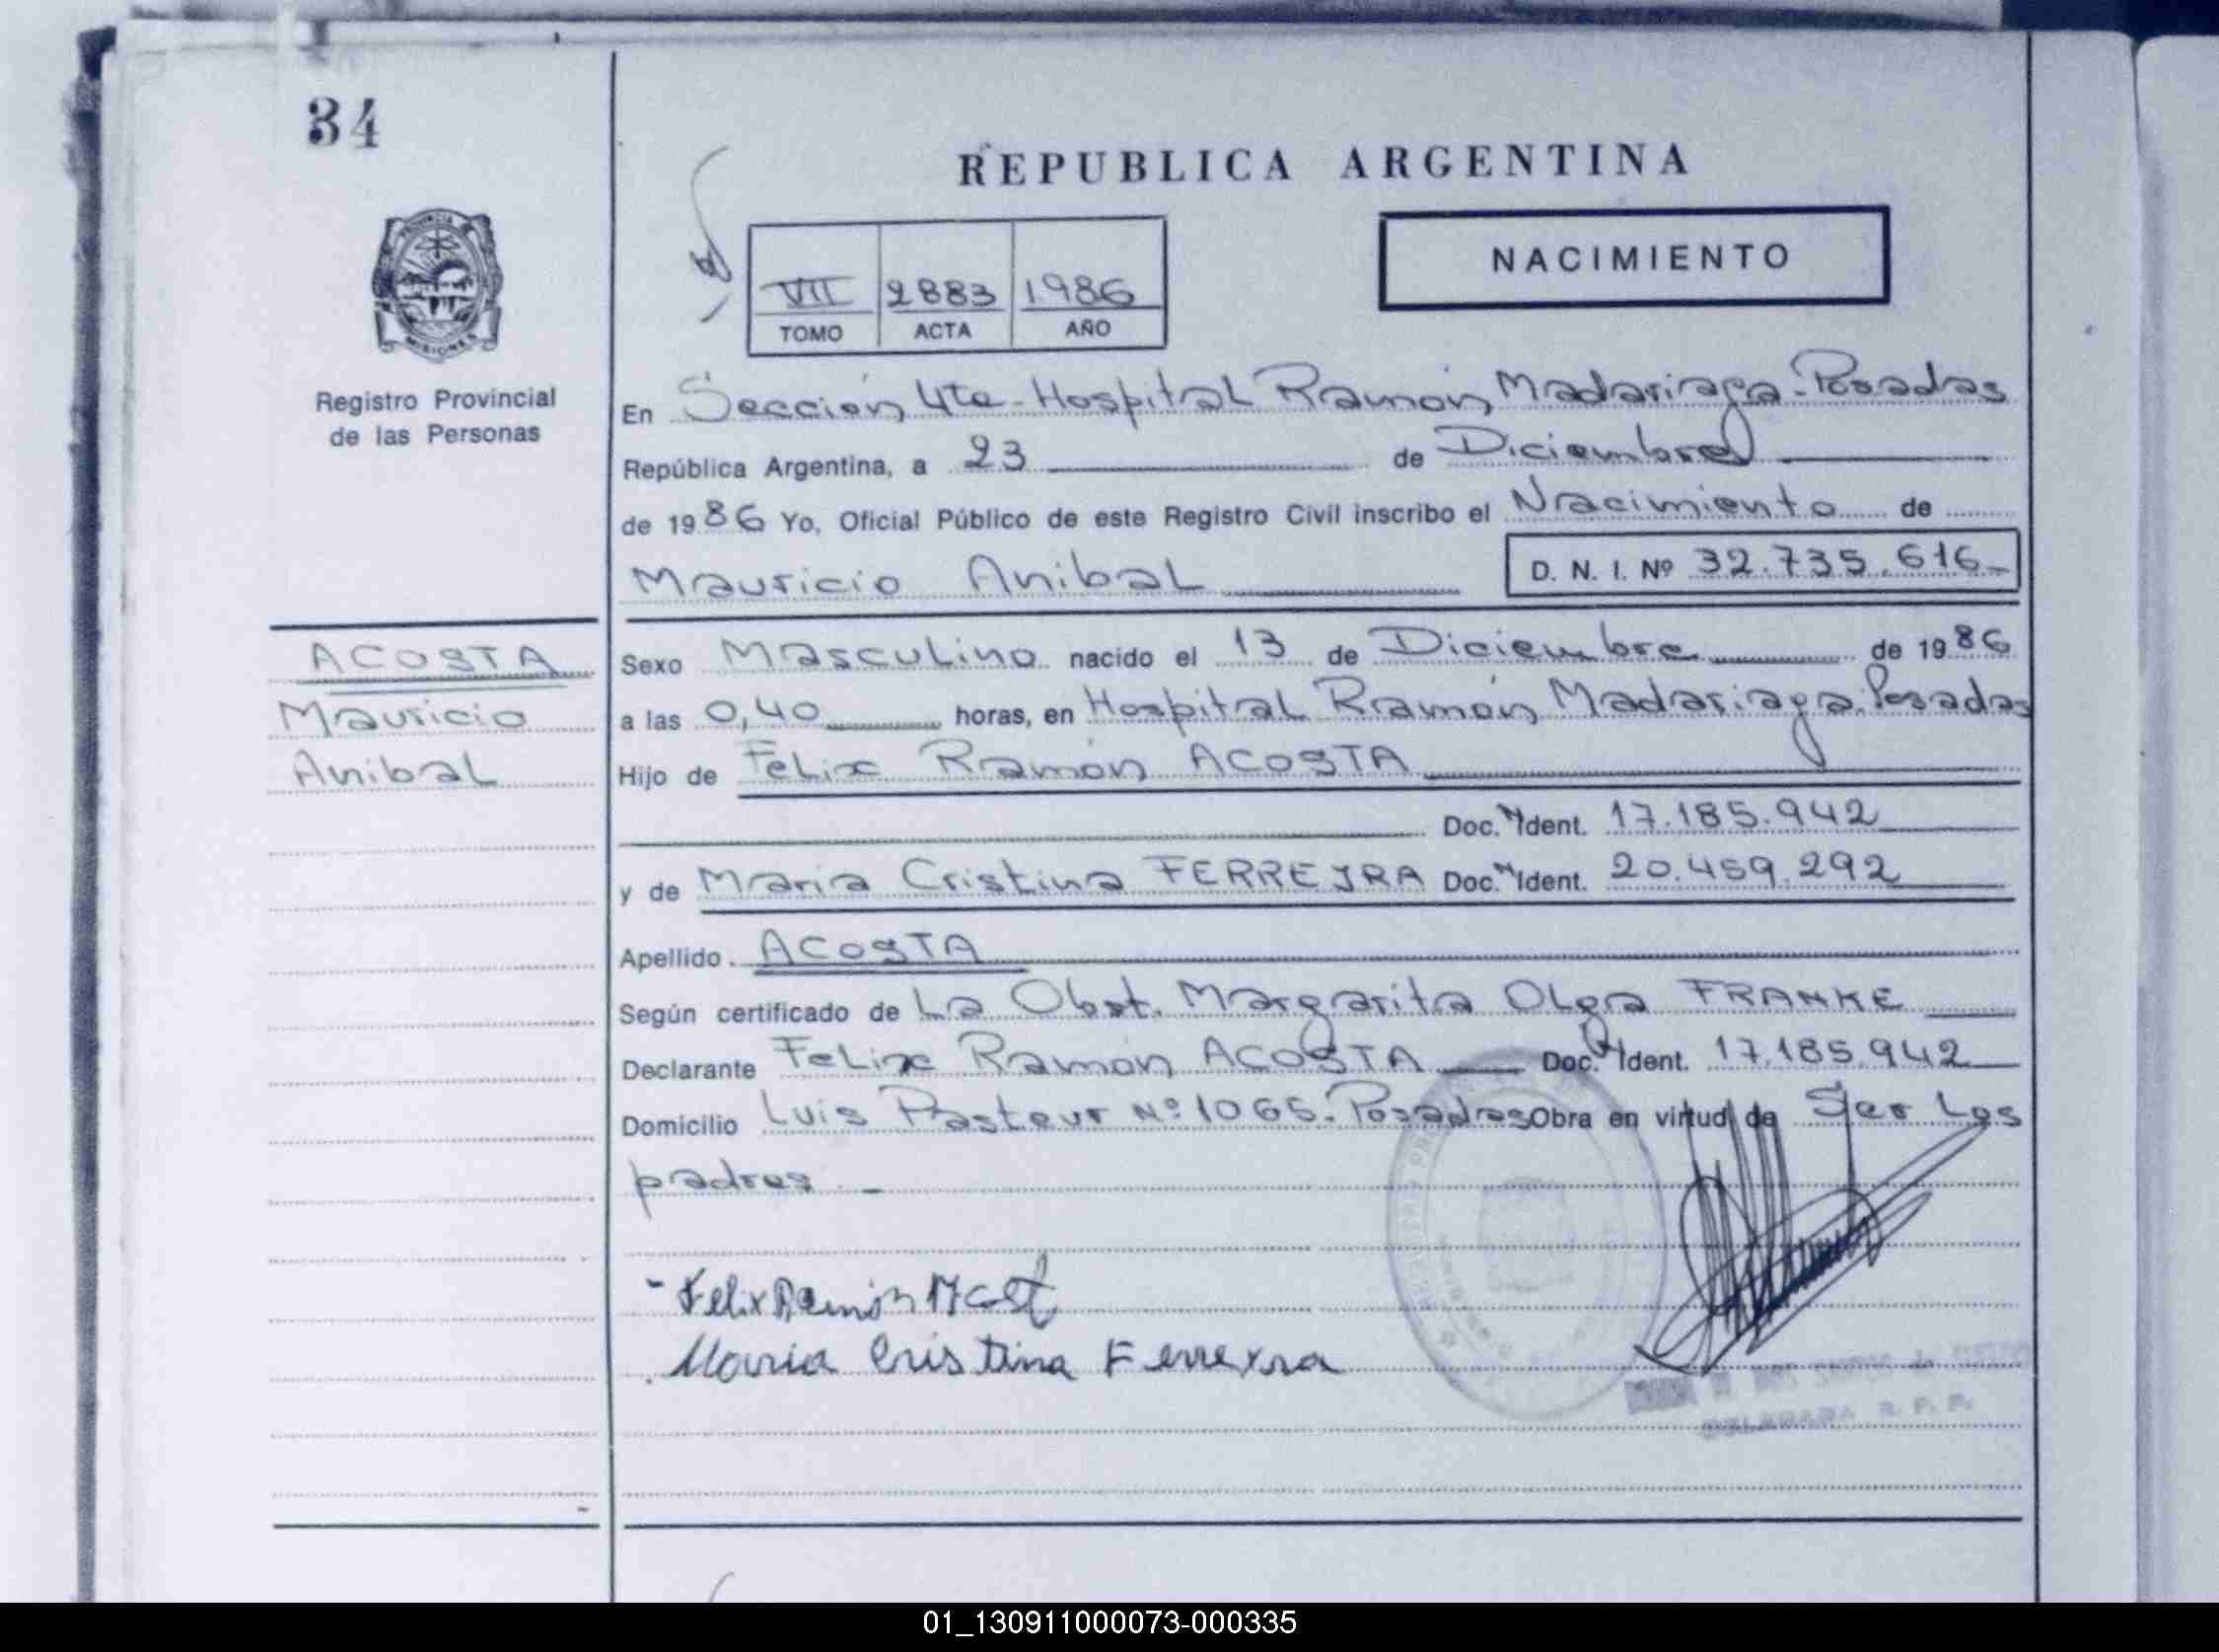 34
REPUBLICA ARGENTINA
PROVINCIA
MISIONES
Registro Provincial
de las Personas
NACIMIENTO
VII 2883 1986
TOMO ACTA AÑO
En Sección 4ta - Hospital Ramón Madariaga - Posadas
República Argentina, a 23 de Diciembre
de 1986 Yo, Oficial Público de este Registro Civil inscribo el Nacimiento de
Mauricio Anibal D. N. I. Nº 32.735.616-
ACOSTA
Mauricio
Anibal
Sexo Masculino nacido el 13 de Diciembre de 1986
a las 0,40 horas, en Hospital Ramón Madariaga. Posadas
Hijo de Felix Ramón ACOSTA
Doc. Ident. 17.185.942
y de Maria Cristina FERREYRA Doc. Ident. 20.459.292
Apellido. ACOSTA
Según certificado de La Obst. Margarita Olga FRANKE
Declarante Felix Ramón ACOSTA Doc. Ident. 17.185.942
Domicilio Luis Pasteur Nº 1065 - Posadas Obra en virtud de Ser Los
padres -
- Felix Ramón Acost
Maria Cristina Ferreyra
R. P. P.
01_130911000073-000335